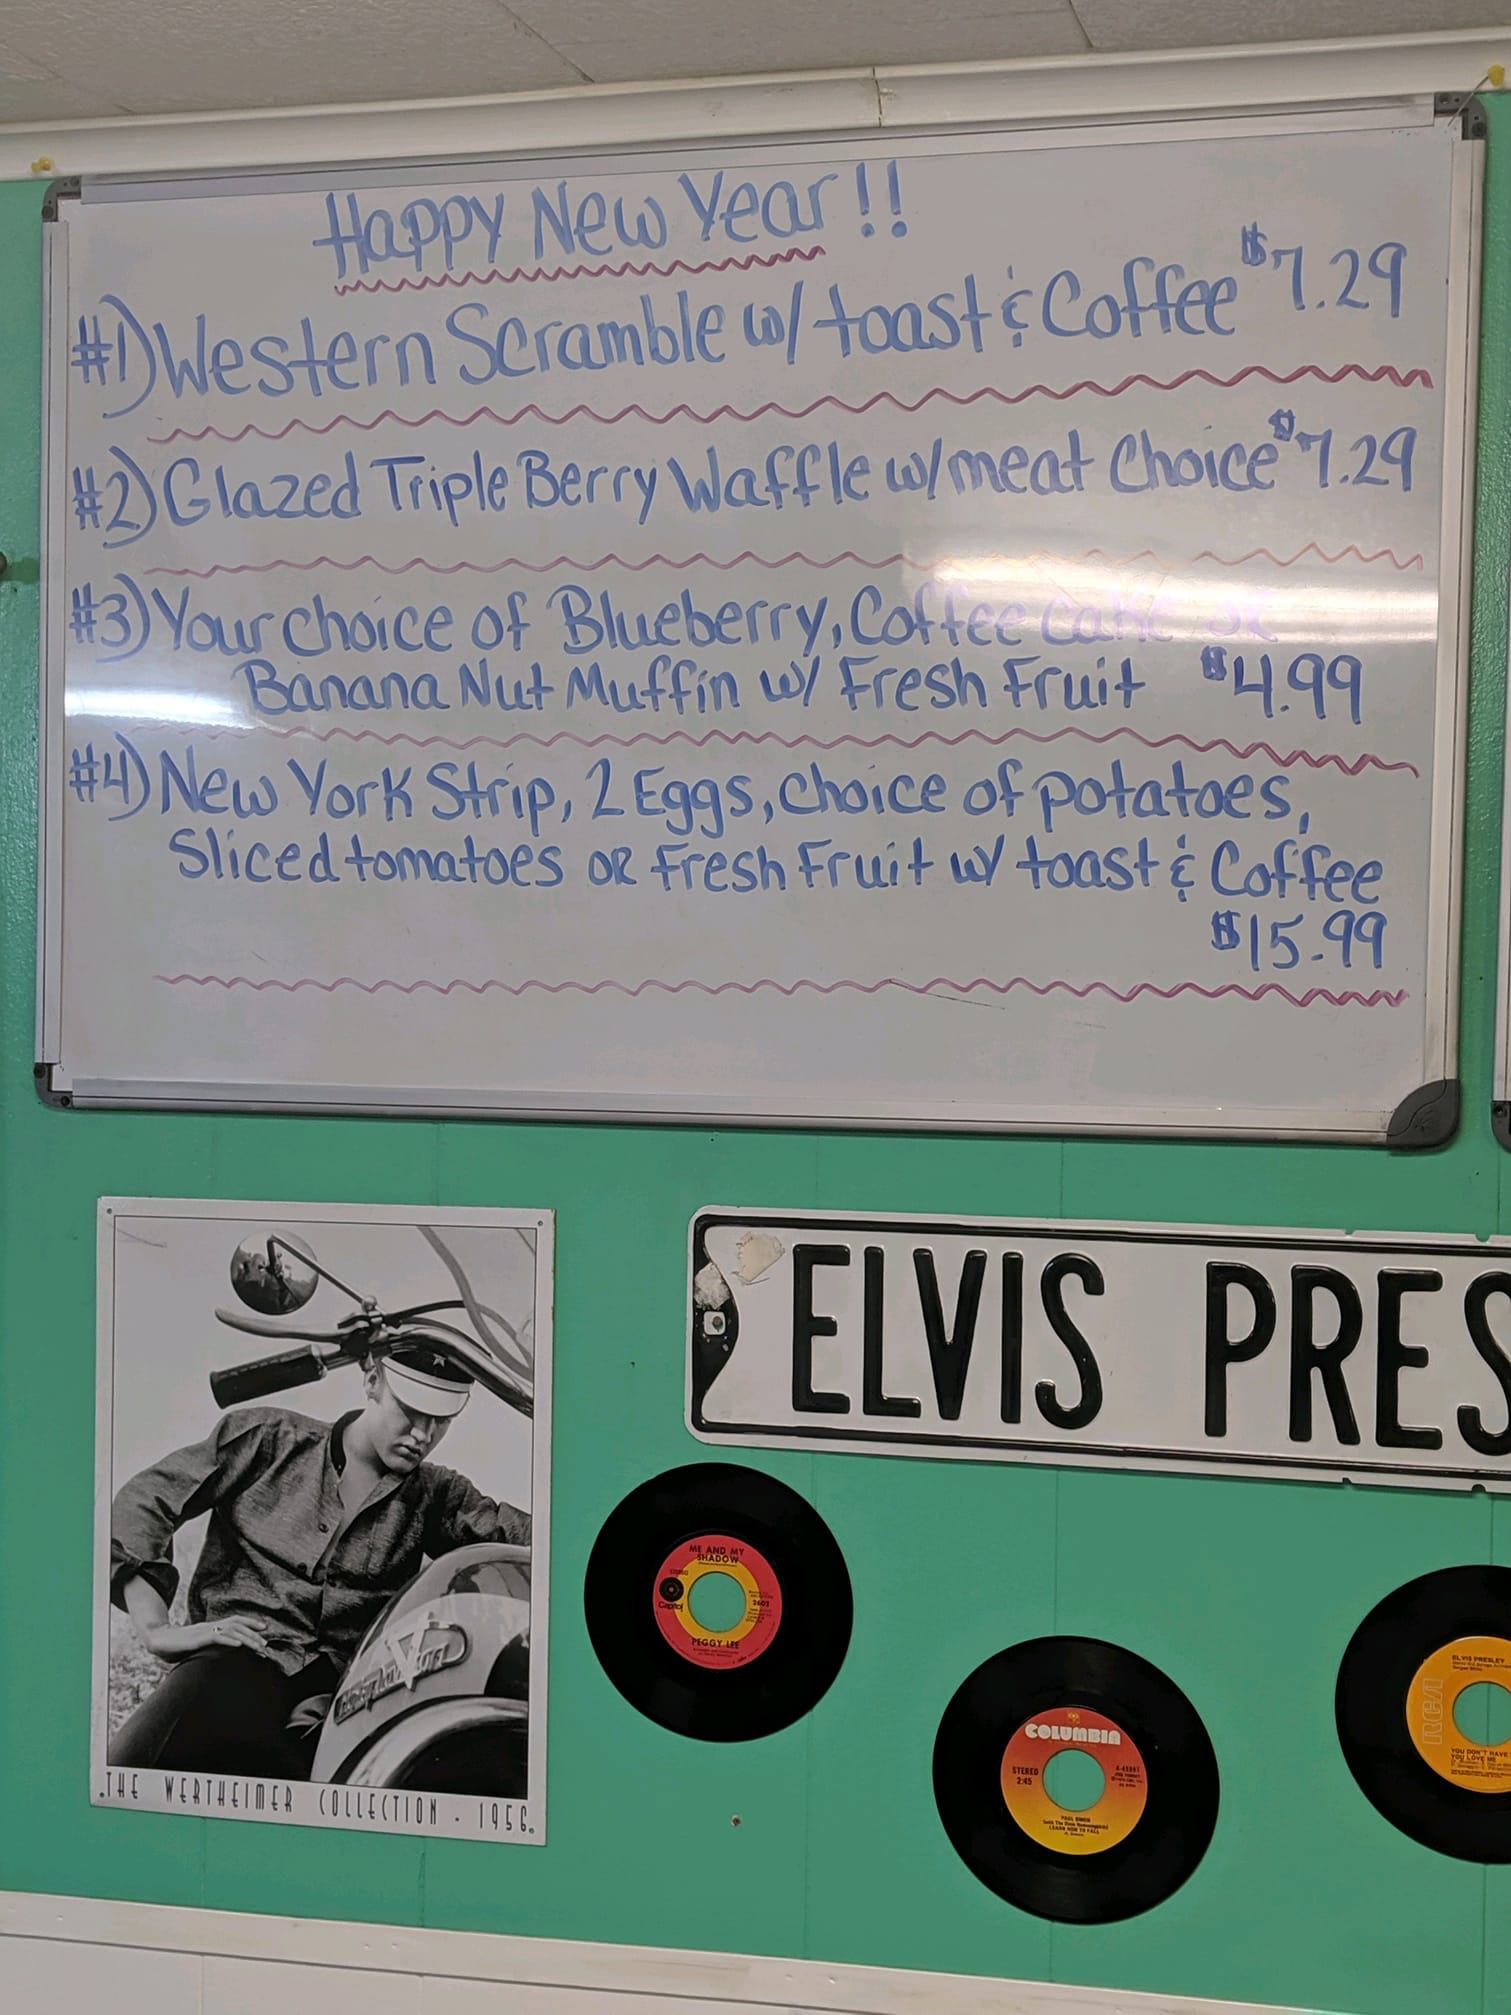 Happy New Year!!
#1) Western Scramble w/ toast & Coffee $7.29
#2) Glazed Triple Berry Waffle w/meat Choice $7.29
#3) Your choice of Blueberry, Coffee cake OR
Banana Nut Muffin w/ Fresh Fruit $4.99
#4) New York Strip, 2 Eggs, choice of potatoes,
Sliced tomatoes OR Fresh Fruit w/ toast & Coffee
$15.99
ELVIS PRES
THE WERTHEIMER COLLECTION - 1956
ME AND MY
SHADOW
STEREO
Capitol
2602
PEGGY LEE
COLUMBIA
STEREO
2:45
PAUL SIMON
LEARN HOW TO FALL
ELVIS PRESLEY
RCA
YOU DON'T HAVE
YOU LOVE ME